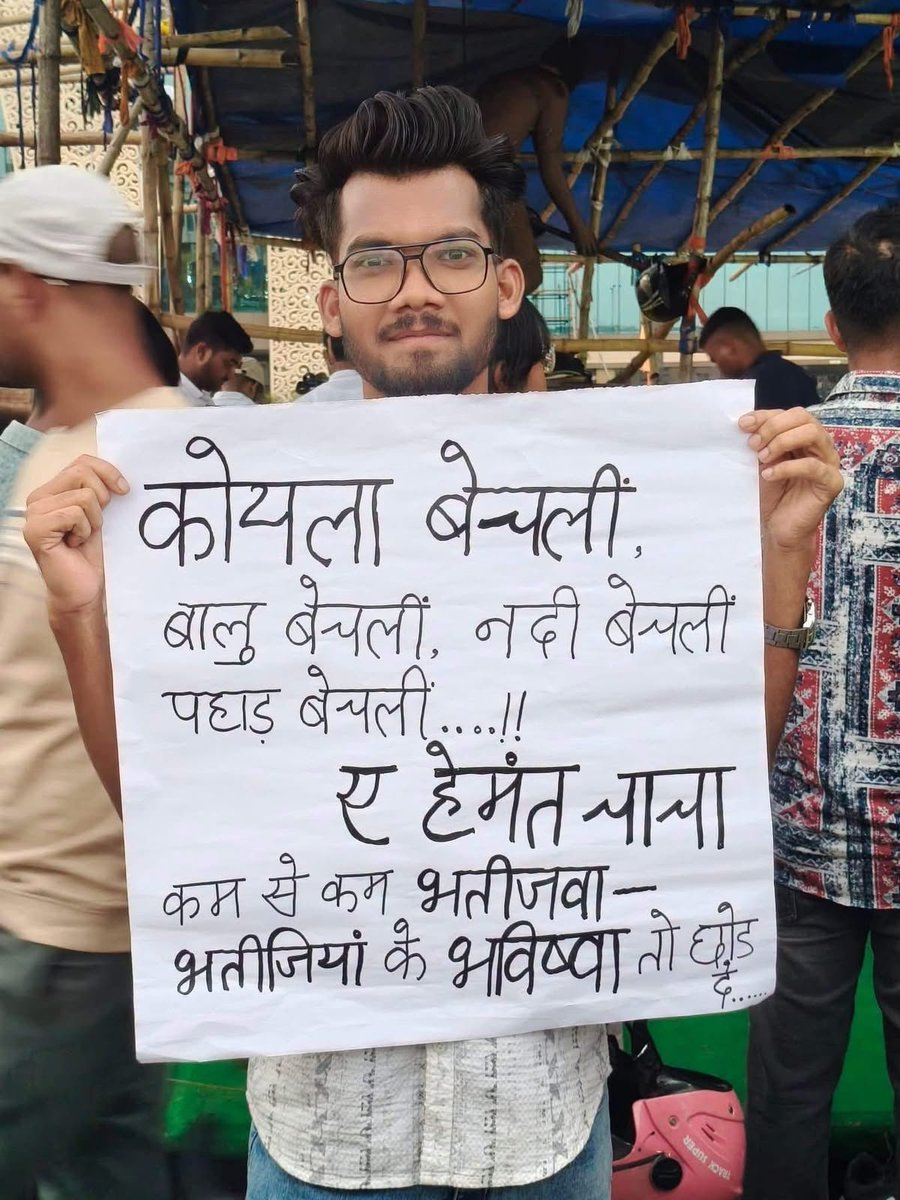 कोयला बेचलीं,
बालु बेचलीं, नदी बेचलीं
पहाड़ बेचलीं....!!
ए हेमंत चाचा
कम से कम भतीजवा-
भतीजियां के भविष्वा तो छोड़
दं......
TRACK SUPER